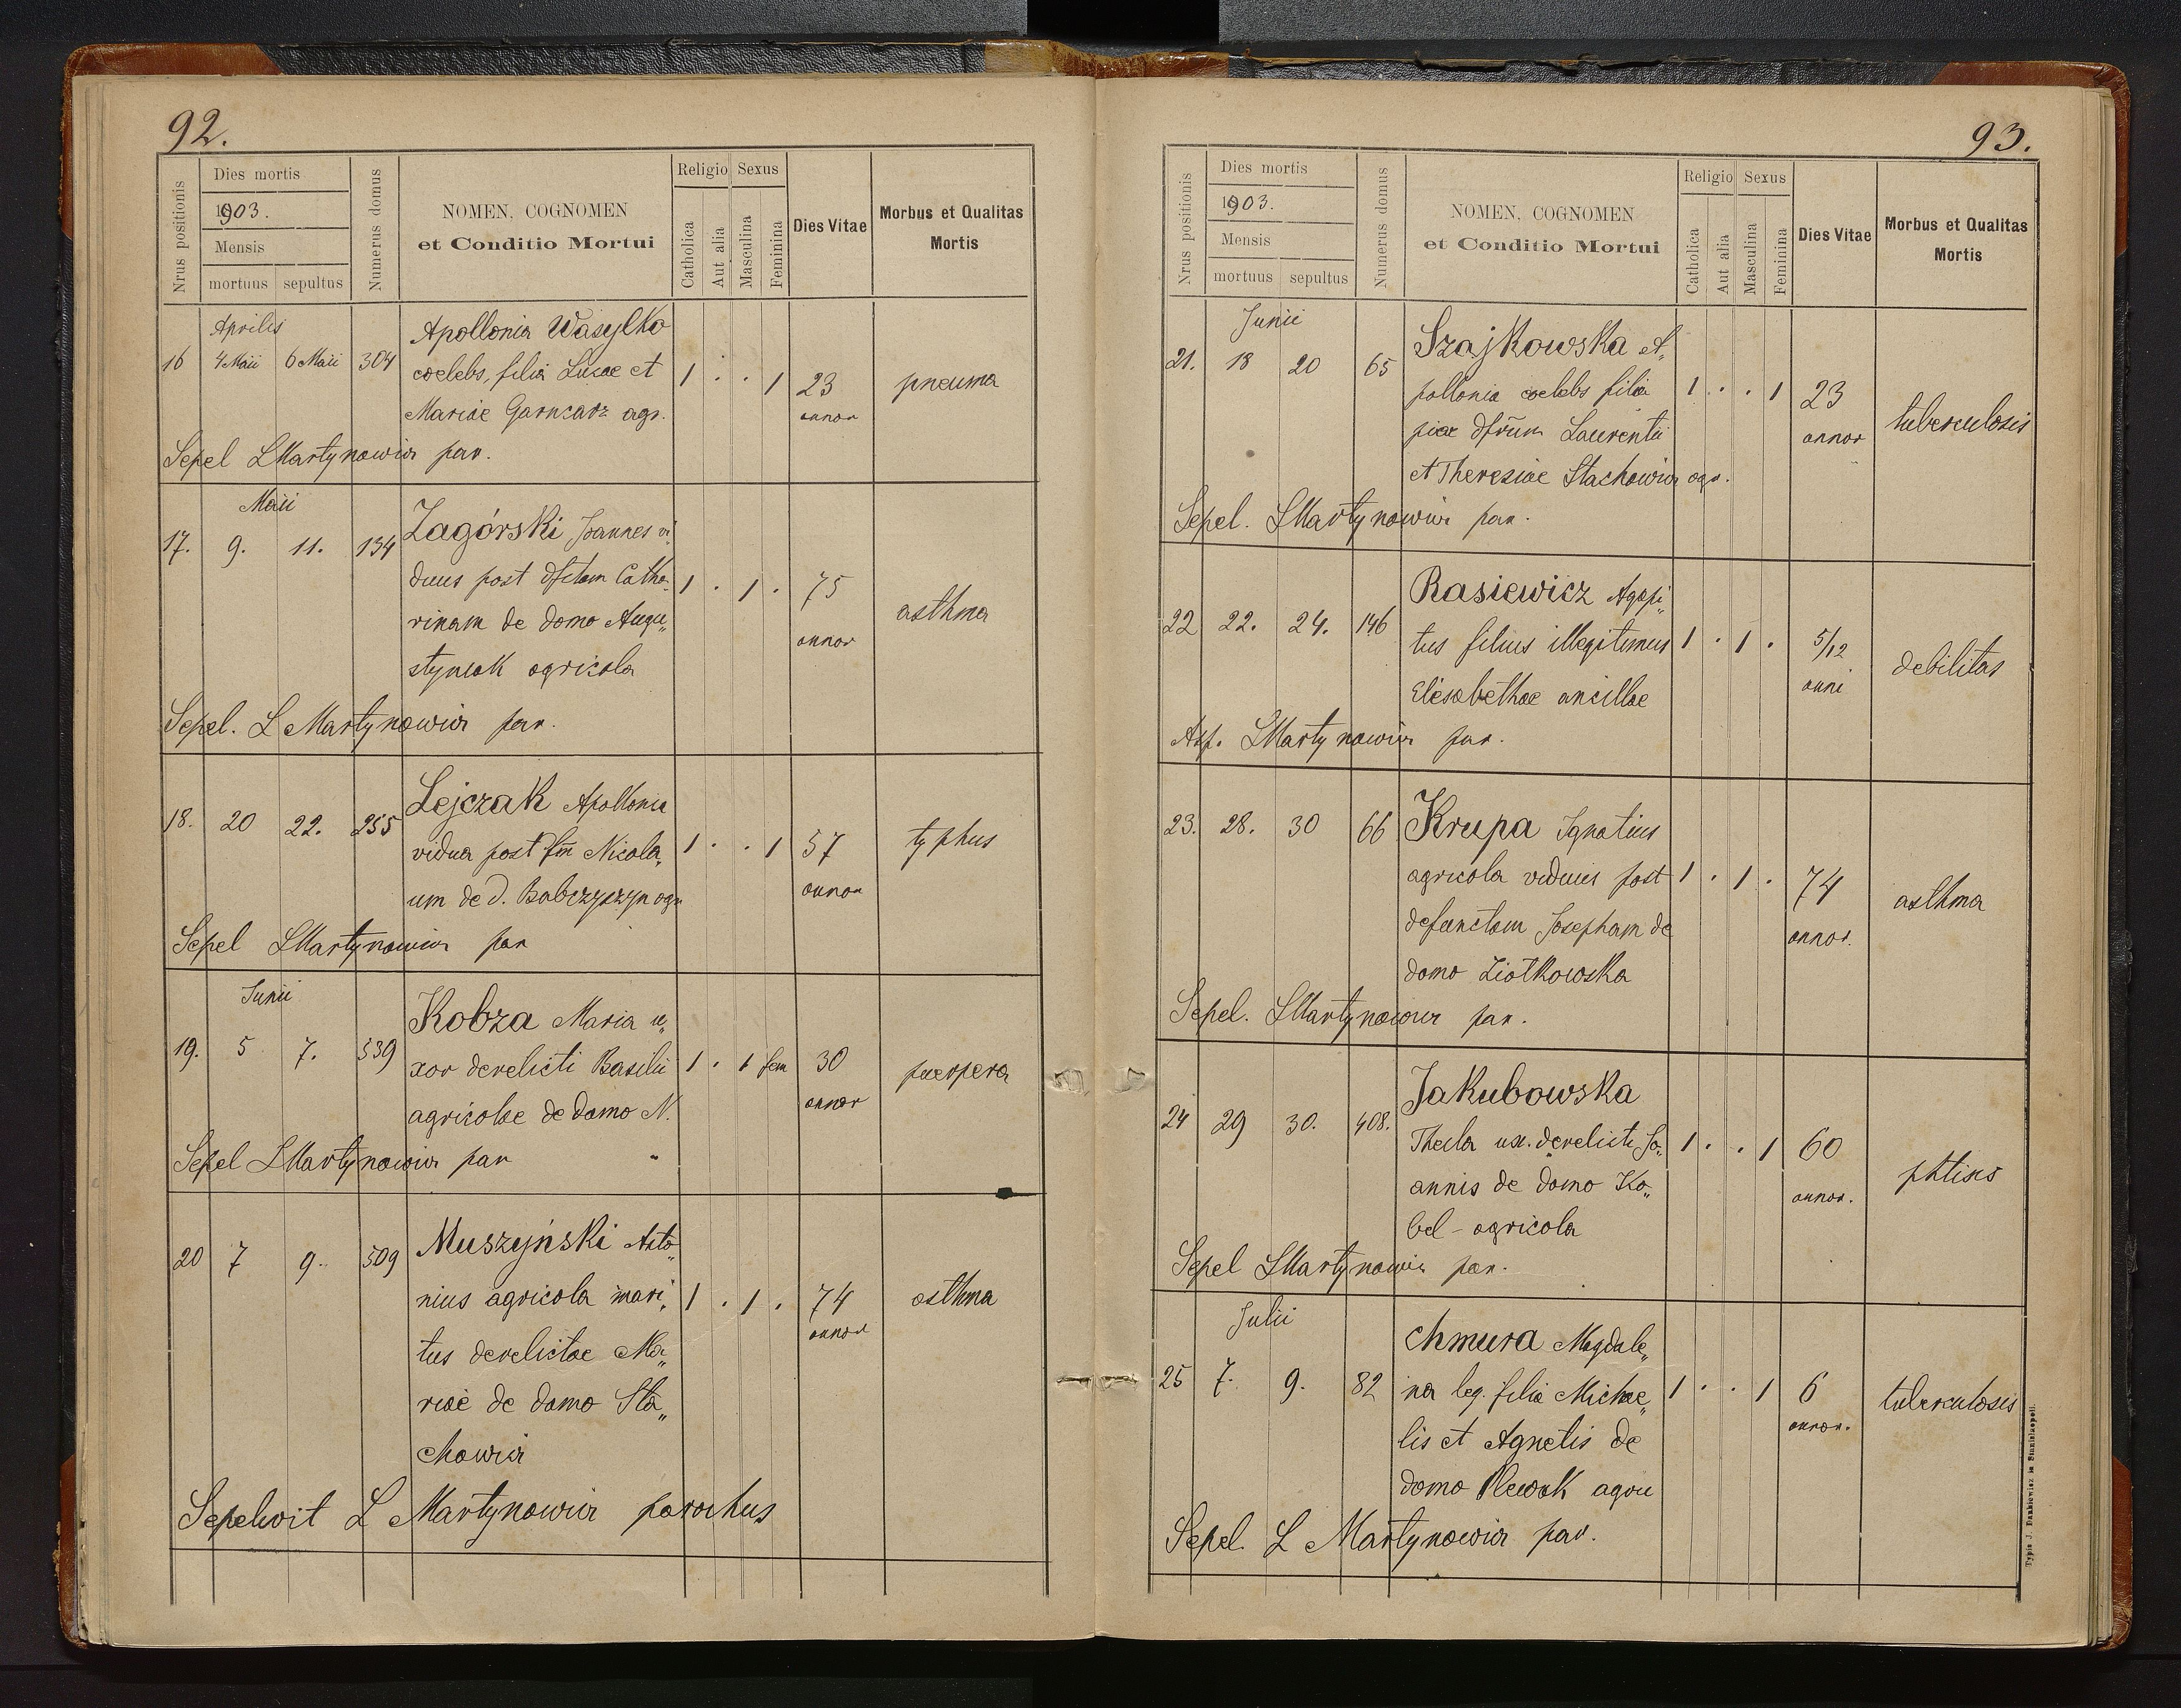 92.
Nrus positionis
Dies mortis
1903.
Mensis
mortuus sepultus
Numerus domus
NOMEN, COGNOMEN
et Conditio Mortui
Religio Sexus
Catholica
Aut alia
Masculina
Feminina
Dies Vitae
Morbus et Qualitas
Mortis
Aprilis
16 4 Maii 6 Maii 304
Apollonia Wasylko
coelebs, filia Lucae et
Mariae Garncarz agr.
1 . . 1 23
annor
pneuma
Sepel L Martynowicz par.
Maii
17. 9. 11. 134
Zagórski Joannes vi„
duus post dfctam Catha„
rinam de domo Augu„
styniak agricola
1 . 1 . 75
annor
asthma
Sepel. L Martynowicz par.
18. 20 22. 255
Lejczak Apollonia
vidua post fm Nicola„
um de d. Babczyszyn agr
1 . . 1 57
annor
typhus
Sepel L Martynowicz par
Junii
19. 5 7. 539
Kobza Maria u„
xor derelicti Basilii
agricolae de domo N.
1 . 1 fem 30
annor
puerpera
Sepel L Martynowicz par
20 7 9. 509
Muszyński Anto„
nius agricola mari„
tus derelictae Ma„
riae de domo Sta„
chowicz
1 . 1 . 74
annor
asthma
Sepelivit L Martynowicz parochus
93.
Nrus positionis
Dies mortis
1903.
Mensis
mortuus sepultus
Numerus domus
NOMEN, COGNOMEN
et Conditio Mortui
Religio Sexus
Catholica
Aut alia
Masculina
Feminina
Dies Vitae
Morbus et Qualitas
Mortis
Junii
21. 18 20 65
Szajkowska A„
pollonia coelebs filia
piae dfrum Laurentii
et Theresiae Stachowicz agr.
1 . . 1 23
annor
tuberculosis
Sepel. L Martynowicz par.
22 22. 24. 146
Rasiewicz Agapi„
tus filius illegitimus
Elisabethae ancillae
1 . 1 . 5/12
anni
debilitas
L Martynowicz par.
23. 28. 30 66
Krupa Ignatius
agricola viduus post
defunctam Josepham de
domo Ziotkowska
1 . 1 . 74
annor.
asthma
Sepel. L Martynowicz par.
24 29 30. 408.
Jakubowska
Thecla ux. derelicti Jo„
annis de domo Ko„
bel - agricola
1 . . 1 60
annor.
phtisis
Sepel L Martynowicz par.
Julii
25 7. 9. 82
Chmura Magdale„
na leg. filia Michae„
lis et Agnetis de
domo Plewak agric
1 . . 1 6
annor.
tuberculosis
Sepel. L Martynowicz par.
Typis J. Dankiewicz in Stanislaopoli.